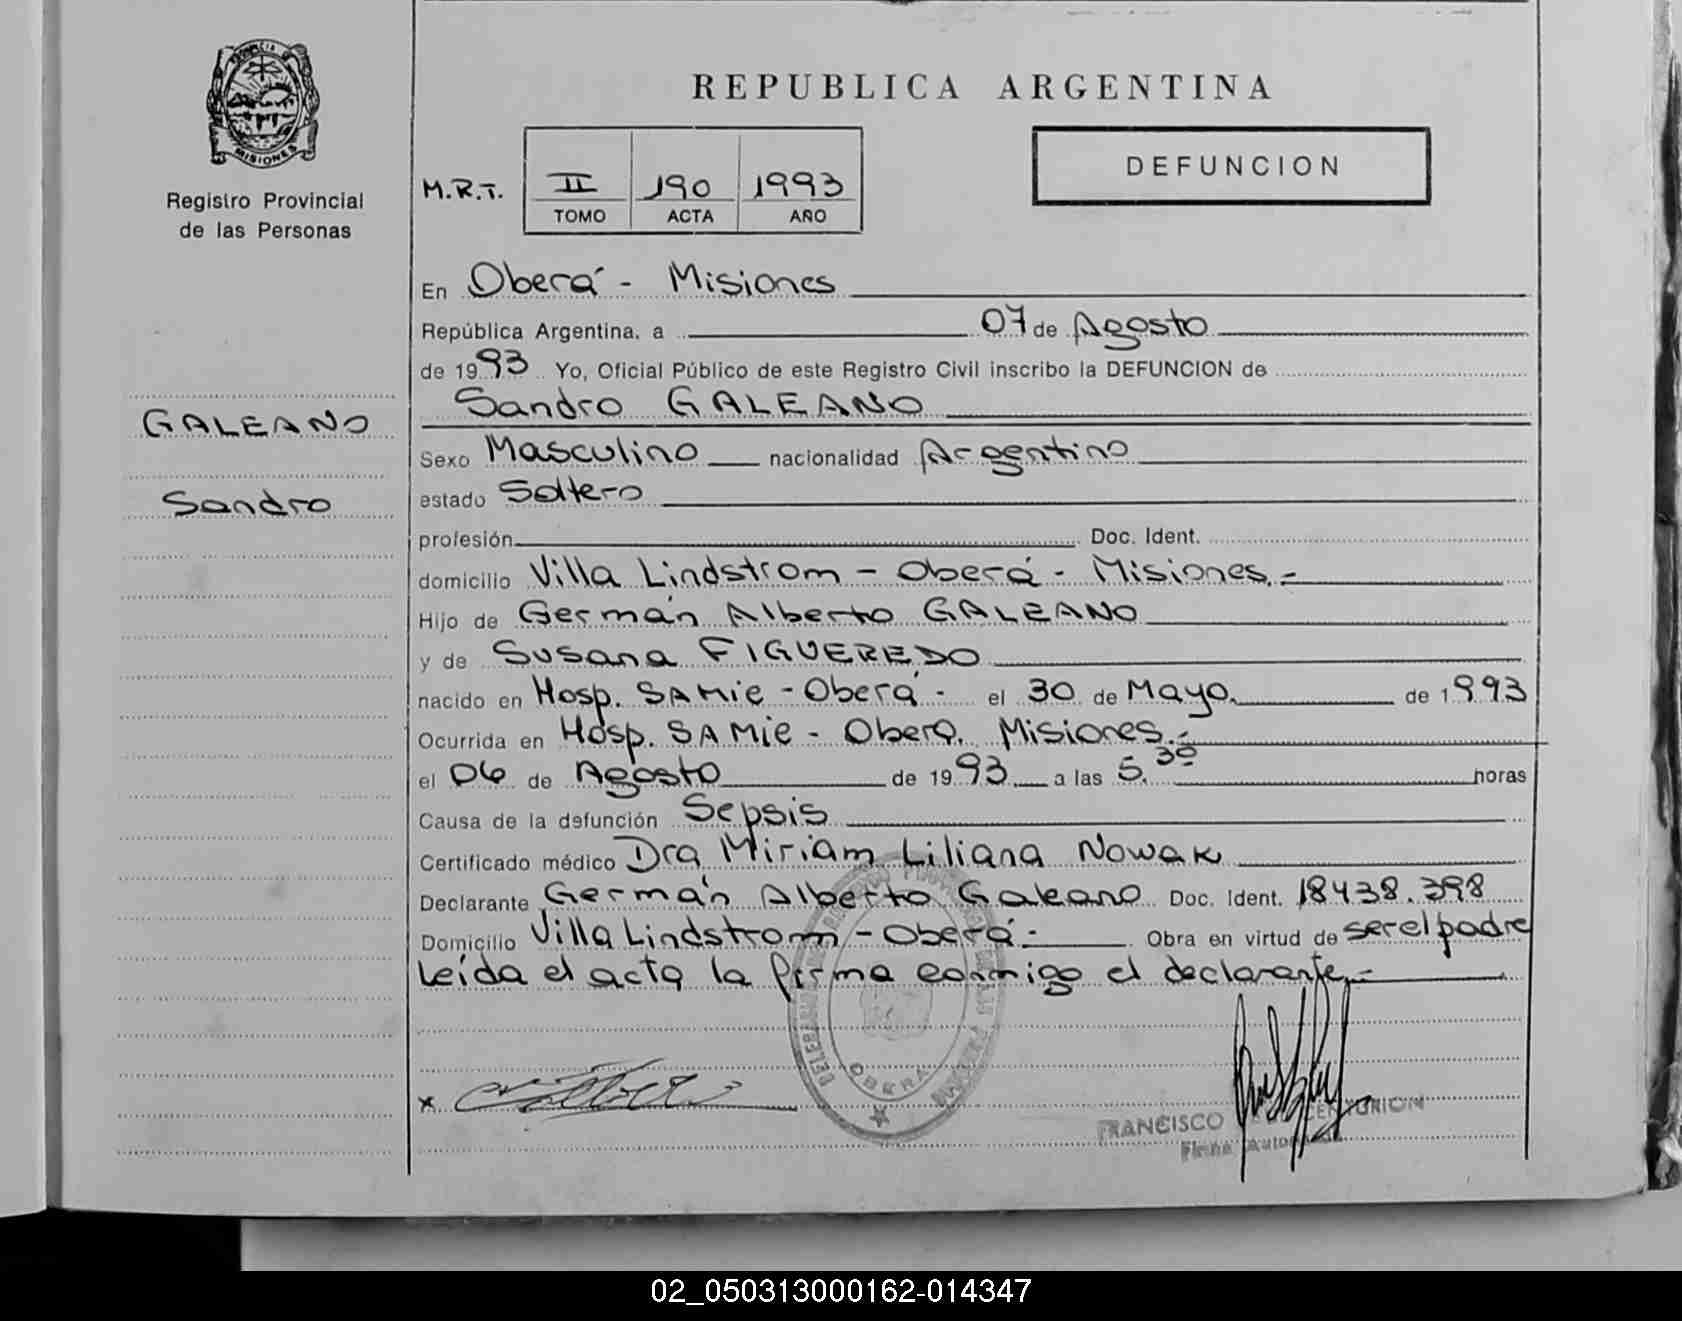 PROVINCIA DE
MISIONES
Registro Provincial
de las Personas
GALEANO
Sandro
REPUBLICA ARGENTINA
M.R.T. II 190 1993
TOMO ACTA AÑO
DEFUNCION
En Oberá - Misiones
República Argentina, a 07 de Agosto
de 1993 Yo, Oficial Público de este Registro Civil inscribo la DEFUNCION de
Sandro GALEANO
Sexo Masculino nacionalidad Argentino
estado Soltero
profesión Doc. Ident.
domicilio Villa Lindstrom - Oberá - Misiones.-
Hijo de Germán Alberto GALEANO
y de Susana FIGUEREDO
nacido en Hosp. SAMIe - Oberá - el 30 de Mayo. de 1993
Ocurrida en Hosp. SAMie - Obera. Misiones.-
el 06 de Agosto de 1993 a las 5.30 horas
Causa de la defunción Sepsis
Certificado médico Dra Miriam Liliana Nowak
Declarante Germán Alberto Galeano Doc. Ident. 18438.398
Domicilio Villa Lindstrom - Oberá - Obra en virtud de ser el padre
Leída el acta la firma conmigo el declarante.-
OBERA
x
FRANCISCO CENTURION
Firma
02_050313000162-014347